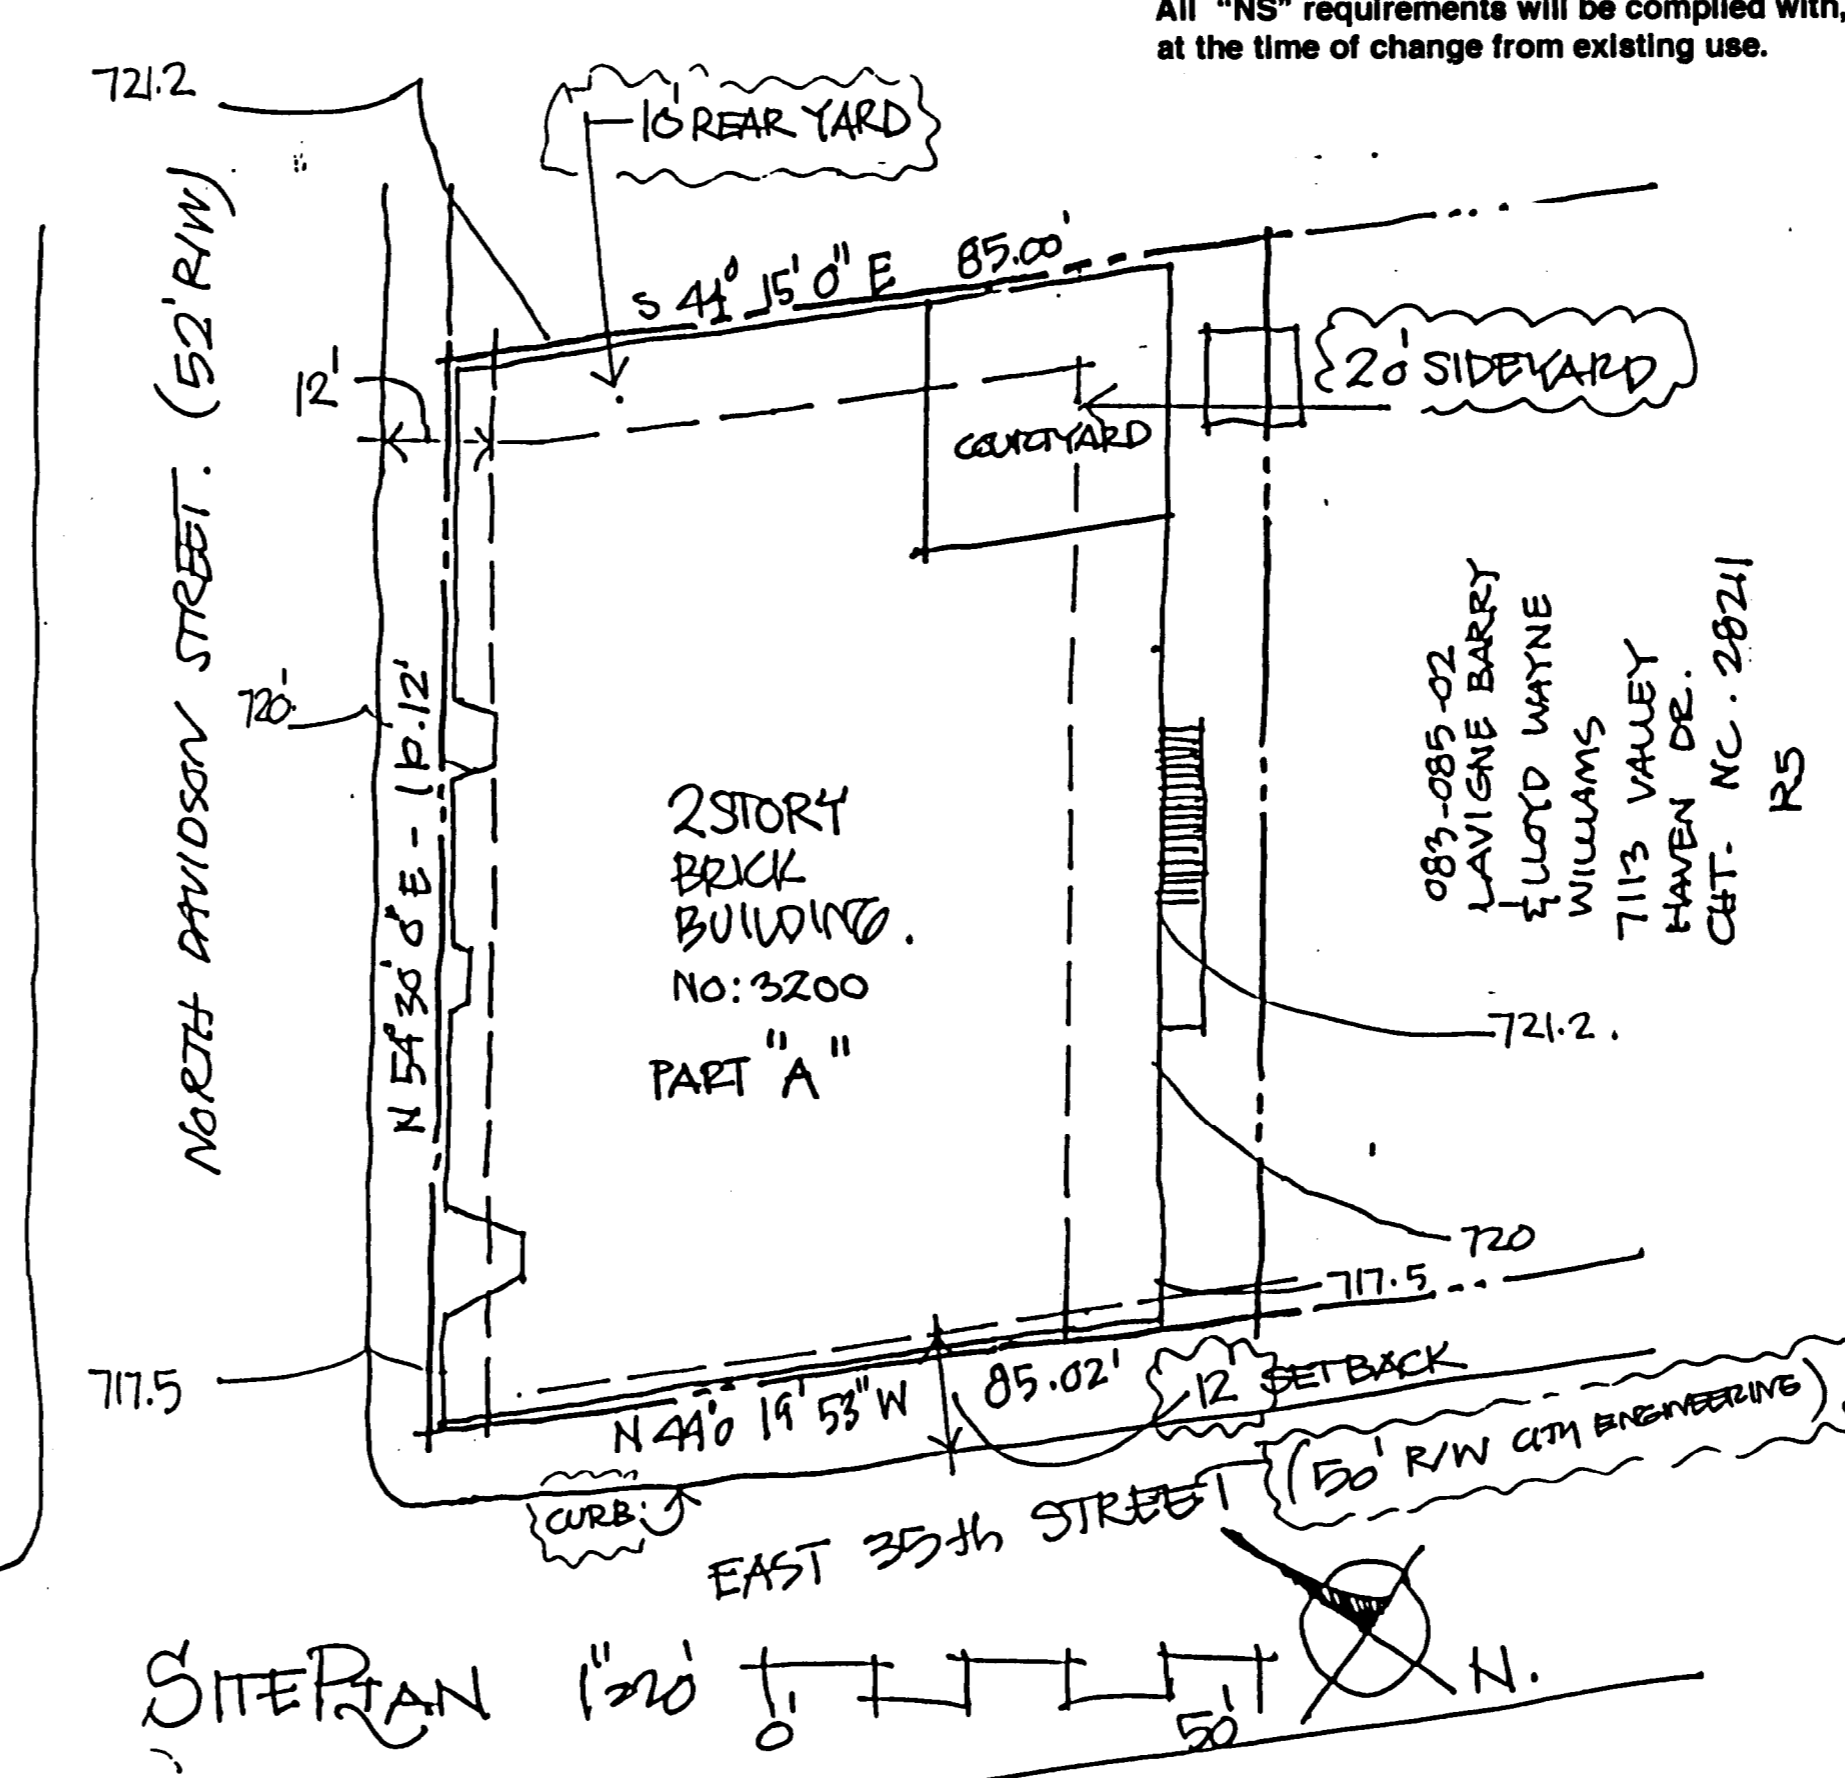 All "NS" requirements will be complied with,
at the time of change from existing use.
721.2
10' REAR YARD
NORTH DAVIDSON STREET. (52' R/W)
S 44° 15' 0" E 85.00'
12'
20' SIDEYARD
COURTYARD
720'
N 54° 30' 0" E - 110.12'
2 STORY
BRICK
BUILDING.
NO: 3200
PART "A"
083-085-02
LAVIGNE BARRY
& LLOYD WAYNE
WILLIAMS
7113 VALLEY
HAVEN DR.
CHT. NC. 28211
R5
721.2.
720
717.5
717.5
N 44° 19' 53" W 85.02'
12' SETBACK
CURB
EAST 35th STREET (50' R/W CITY ENGINEERING)
SITE PLAN 1"=20' 0' 50' N.